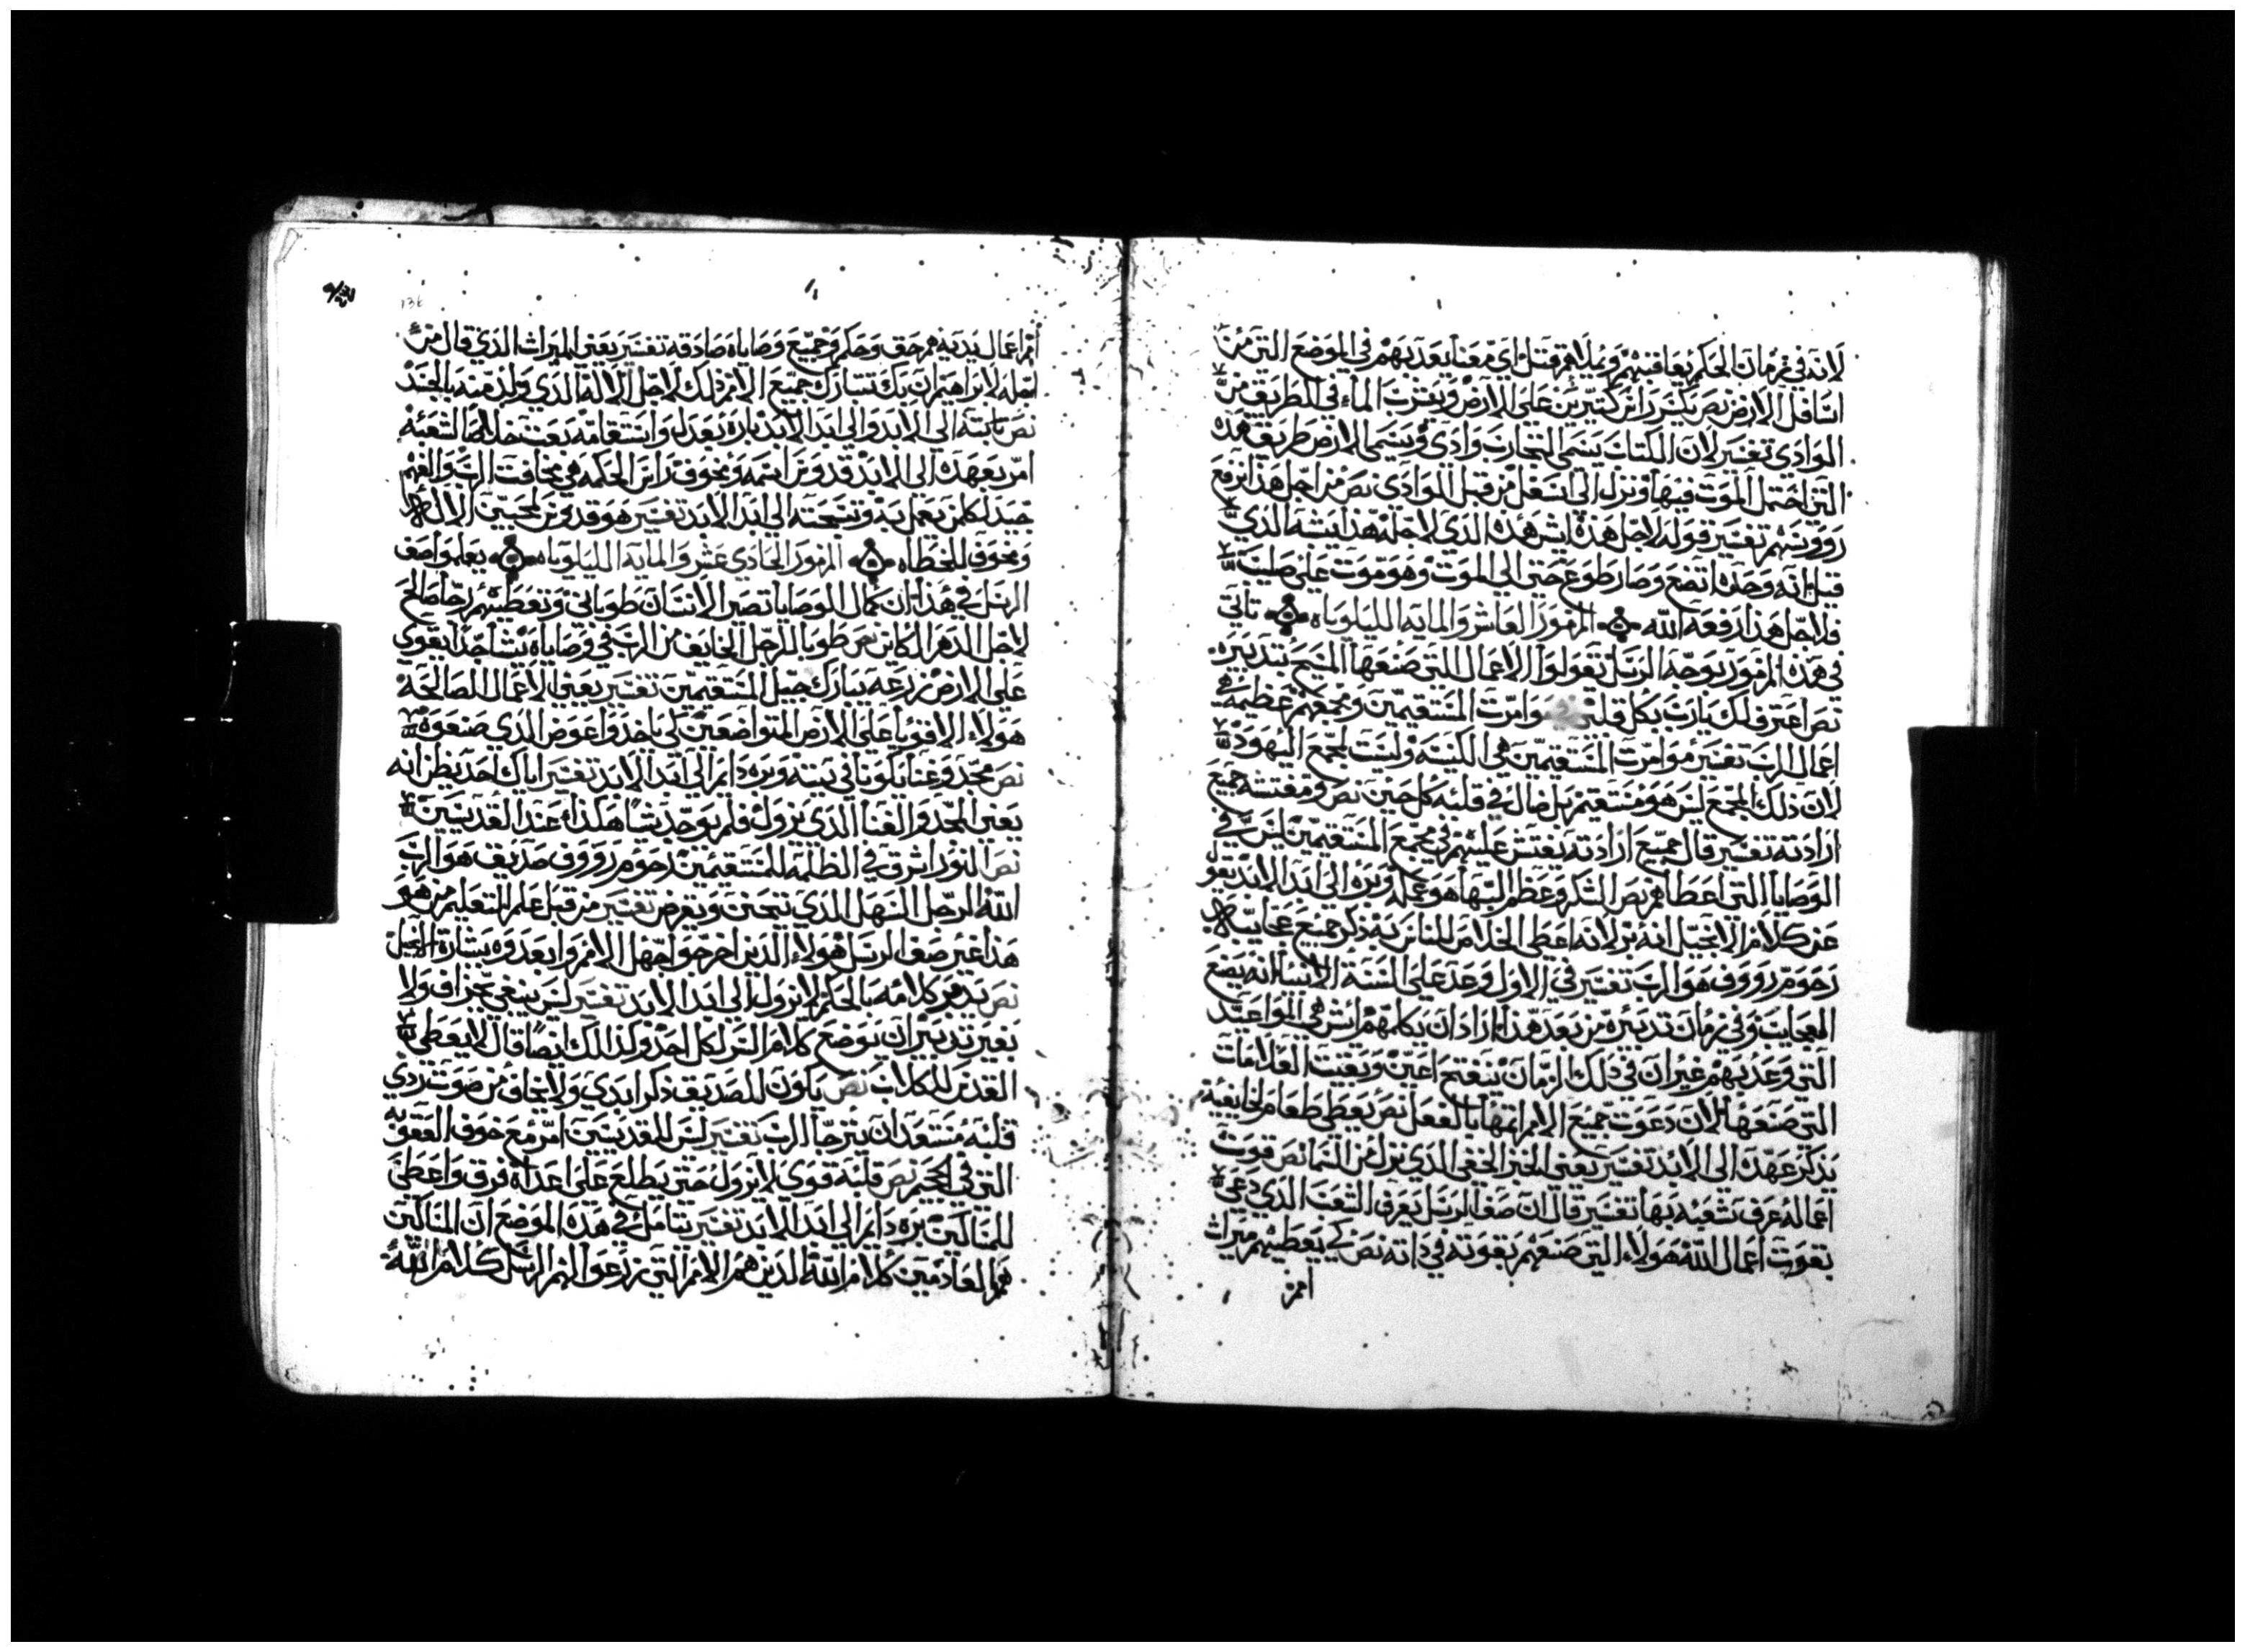 لانه في زمان الحكم يعاقبهم ويملاهم قتل اي معنا يعذبهم في الموضع التي من
اسافل الارض نص يكسر راس كتيرين على الارض ويشرب الماء في الطريق من
الوادي تفسير لان الكتاب يسمى التجارب وادي ويسمى الارض طريق هذه
التي احتمل الموت فيها ونزل الى اسفل من قبل الوادي نص من اجل هذا ترفع
رووسهم تفسير قوله لاجل هذه ايش هذه الذي لاجله هذا يشه الذي
قيل انه وحده اتضع وصار طوع حتى الى الموت وهو موت على صليب
فلاجل هذا رفعه الله المزمور العاشر والمايه الليلوياه تاتي
في هذا المزمور بوجه الرسل تقولوا الاعمال التي صنعها المسيح بتدبيره
نص اعترف لك يارب بكل قلبي موامرت المستقيمين ومجمعهم عظيمه هي
اعمال الرب تفسير موامرت المستقيمين هي الكنيسه وليست لجمع اليهود
لان ذلك المجمع ليس هو مستقيم بل ضال في قلبه كل حين نص ومفتشه جميع
ارادته تفسير قال جميع ارادته يفتش عليهم في مجمع المستقيمين ليس في
الوصايا التي اعطاهم نص الشكر وعظم البها هو عمله وبره الى ابد الابد تقول
عن كلام الانجيل انه بر لانه اعطى الخلاص للناس به ذكر جميع عجايبه
رحوم رووف هو الرب تفسير في الاول وعد على السنة الانبيا انه يضع
العجايب وفي زمان تدبيره من بعد هذا اراد ان يكلمهم ايش هي المواعيد
التي وعد بهم غير ان في ذلك الزمان ينفتح اعين وبقيت العلامات
التي صنعها لان دعوت جميع الامم اتمها بالفعل نص يعطي طعام لخايفيه
يذكر عهده الى الابد تفسير يعني الخبز الخفي الذي نزل من السما نص قوت
اعماله عرف شعبه بها تفسير قال ان صف الرسل يعرف الشعب الذي دعي
بقوت اعمال الله هولاء التي صنعهم بقوته في ذاته نص كي يعطيهم ميراث
امم
امم اعمال يديه هم حق وحكم وجميع وصاياه صادقه تفسير يعني الميراث الذي قال من
اجله لابراهيم ان بك تتبارك جميع الامم ذلك لاجل الاله الذي ولد منه بالجسد
نص ثابته الى الابد والى ابد الابد بارة بعدل واستقامه بعث خلاصا لشعبه
امر بعهده الى الابد قدوس اسمه ومخوف راس الحكمه هي مخافت الرب والفهم
جيد لكل من يعمل به وتسبحته الى ابد الابد تفسير هو قدوس لمحبين الاله
ومخوف للخطاه المزمور الحادي عشر والمايه الليلوياه يعلموا صف
الرسل في هذا ان كمال الوصايا تصير الانسان طوباني وتعطيهم رجا صالح
لاجل الدهر الكاين نص طوبا للرجل الخايف من الرب في وصاياه يشا جدا يقوي
على الارض زرعه يبارك جيل المستقيمين تفسير يعني الاعمال الصالحه
هولاء الاقويا على الارض المتواضعين لكي ياخذوا عوض الذي صنعوه
نص مجد وغنا يكونا في بيته وبره دايم الى ابد الابد تفسير اياك احد يظن انه
يعني المجد والغنا الذي يزول فلم يوجد شيا هكذا عند القديسين
نص النور اشرق في الظلمه للمستقيمين رحوم رووف صديق هو الرب
الله الرجل السهل الذي يتحنن ويقرض تفسير من قبل علم التعليم من هو
هذا غير صف الرسل هولاء الذين اخرجوا جهل الامم وابعدوه بشارة الانجيل
نص يدبر كلامه بالحكم لا يزول الى ابد الابد تفسير ليس ينبغي بجزاف ولا
بغير تدبير ان يوضع كلام السر لكل احد ولذلك ايضا قال لا يعطى
القدس للكلاب نص يكون للصديق ذكر ابدي ولا يخاف من صوت ردي
قلبه مستعد ان يترجا الرب تفسير ليس للقديسين امر مع خوف العقوبه
التي في الجحيم نص قلبه قوي لا يزول حتى يطلع على اعداه فرق واعطى
للمساكين بره دايم الى ابد الابد تفسير تتامل في هذه الموضع ان المساكين
هم العادمين كلام الله الذين هم الامم التي زرعوا لهم الرسل كلام الله